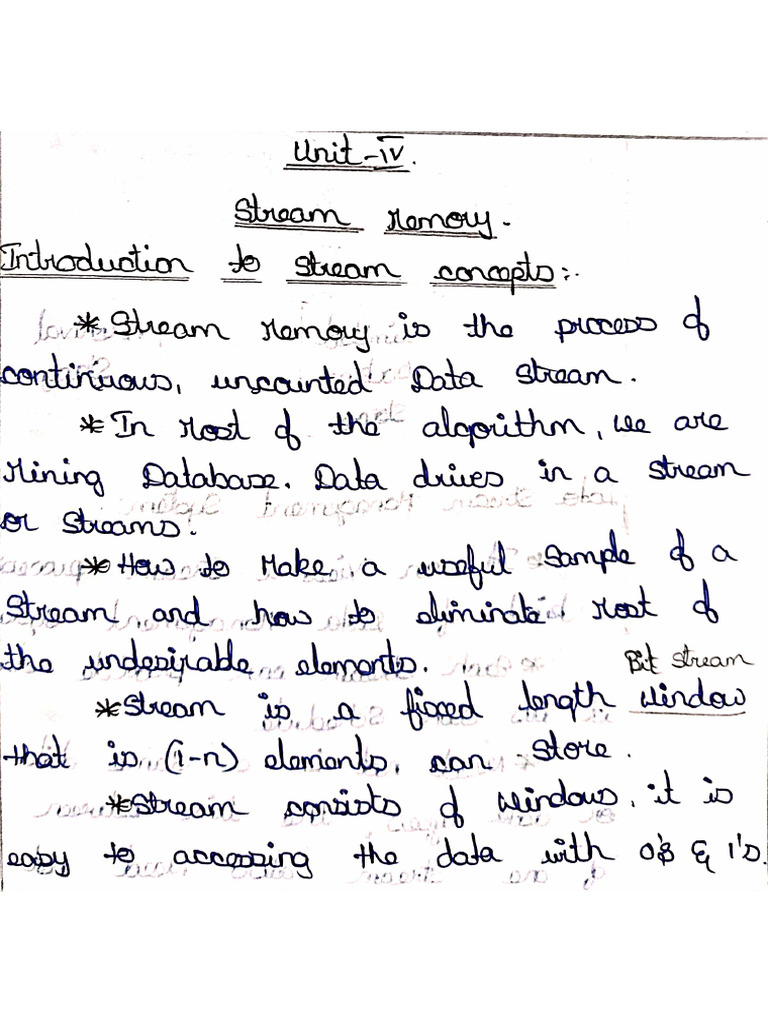 Unit-IV.
Stream Memory.
Introduction to Stream concepts:-
* Stream Memory is the process of
continuous, uncounted Data Stream.
* In Most of the algorithm, we are
Mining Database. Data drives in a stream
or Streams.
* How to Make a useful Sample of a
Stream and how to eliminate Most of
the undesirable elements.
Bit Stream
* Stream is a fixed length Window
that is (i-n) elements, can store.
* Stream consists of Windows, it is
easy to accessing the data with 0's & 1's.